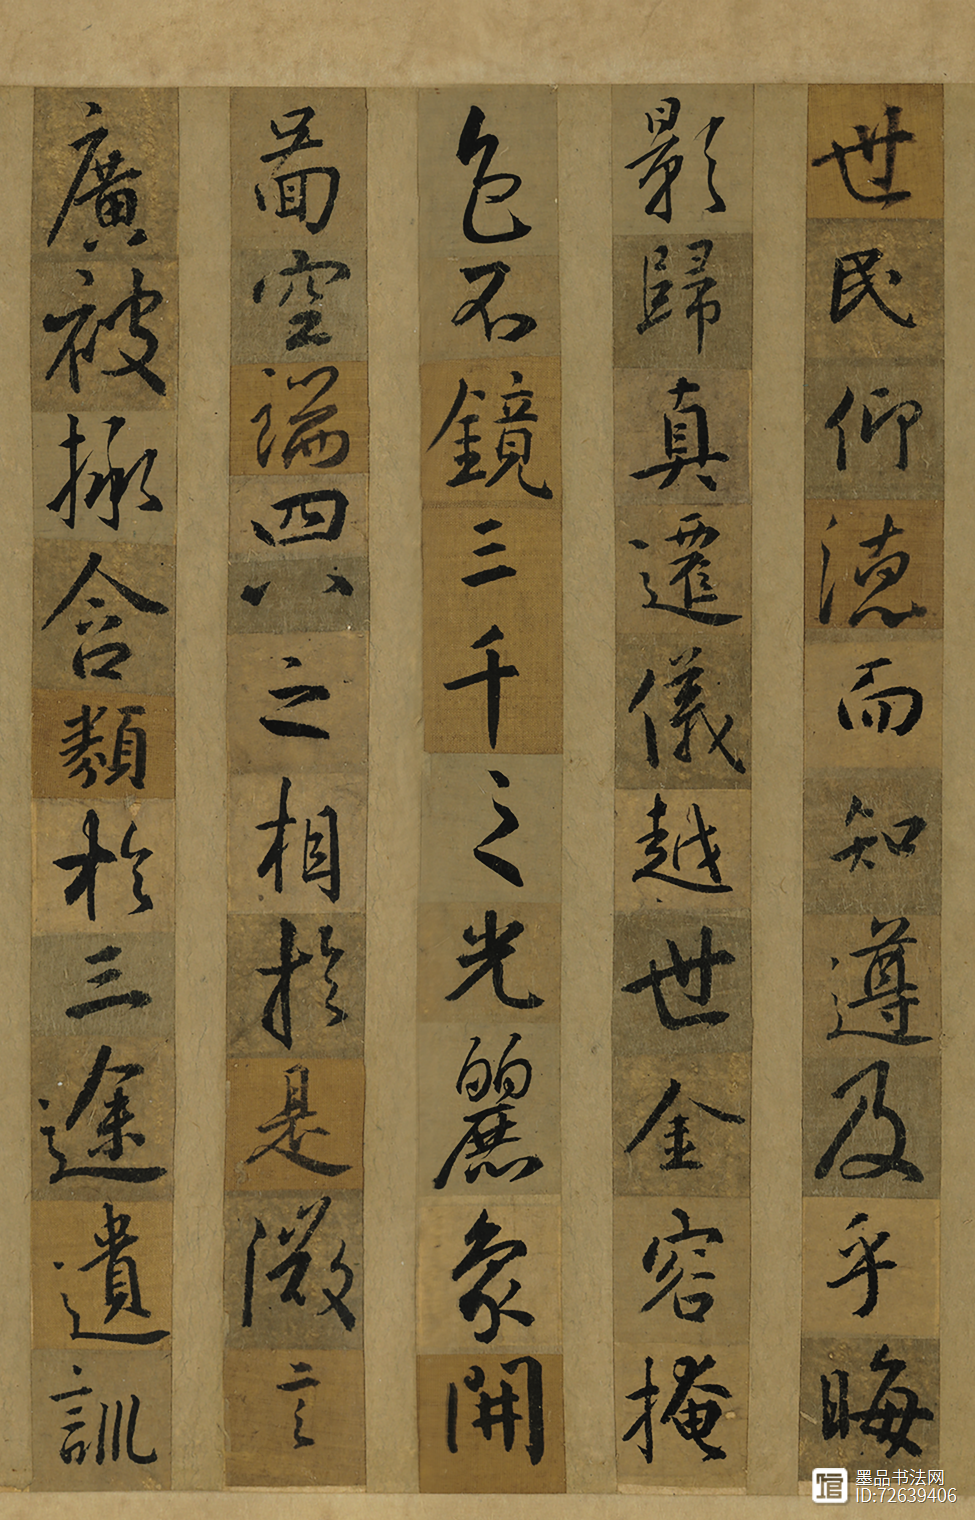 世民仰德而知遵及乎晦
影歸真遷儀越世金容掩
色不鏡三千之光麗象開
啚空端四八之相於是微言
廣被拯含類於三途遺訓
墨品书法网
ID:72639406